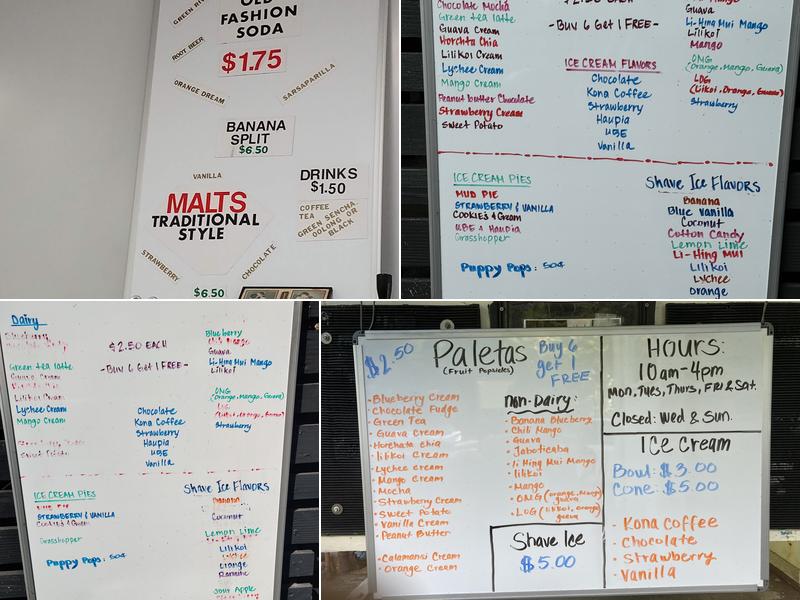 OLD
FASHION
SODA
$1.75
ROOT BEER
ORANGE DREAM
SARSAPARILLA
BANANA
SPLIT
$6.50
VANILLA
DRINKS
$1.50
MALTS
TRADITIONAL
STYLE
COFFEE
TEA
GREEN SENCHA
OOLONG OR
BLACK
STRAWBERRY
CHOCOLATE
$6.50
Chocolate Mocha
Green tea latte
Guava Cream
Horchta Chia
Lilikoi Cream
Lychee Cream
Mango Cream
Peanut butter Chocolate
Strawberry Cream
Sweet Potato
-Buy 6 Get 1 FREE-
ICE CREAM FLAVORS
Chocolate
Kona Coffee
Strawberry
Haupia
UBE
Vanilla
Guava
Li-Hing Mui Mango
Lilikoi
Mango
OMG
(Orange, Mango, Guava)
LOG
(Likoi, Orange, Guava)
Strawberry
ICE CREAM PIES
MUD PIE
STRAWBERRY & VANILLA
COOKIES & Cream
UBE & Haupia
Grasshopper
Puppy Pops: 50¢
Shave Ice Flavors
Banana
Blue Vanilla
Coconut
Cotton Candy
Lemon Lime
Li-Hing Mui
Lilikoi
Lychee
Orange
Dairy
$2.50 EACH
-Buy 6 Get 1 FREE-
Green tea latte
Lilikoi Cream
Lychee Cream
Mango Cream
Sweet Potato
Chocolate
Kona Coffee
Strawberry
Haupia
UBE
Vanilla
Blueberry
Guava
Li-Hing Mui Mango
Lilikoi
OMG
(Orange, Mango, Guava)
Strawberry
ICE CREAM PIES
MUD PIE
STRAWBERRY & VANILLA
Cookies & Cream
Grasshopper
Puppy Pops: 50¢
Shave Ice Flavors
Banana
Coconut
Lemon Lime
Lilikoi
Lychee
Orange
Sour Apple
$2.50
Paletas
(Fruit Popsicles)
Buy 6
get 1
FREE
- Blueberry Cream
- Chocolate Fudge
- Green Tea
- Guava Cream
- Horchata chia
- lilikoi Cream
- Lychee cream
- Mango Cream
- Mocha
- Strawberry Cream
- Sweet Potato
- Vanilla Cream
- Peanut Butter
- Calamansi Cream
- Orange Cream
Non-Dairy:
- Banana Blueberry
- Chili Mango
- Guava
- Jaboticaba
- li Hing Mui Mango
- lilikoi
- Mango
- OMG (orange, Mango, guava)
- LOG (lilikoi, orange, guava)
Shave Ice
$5.00
Hours:
10am-4pm
Mon, Tues, Thurs, Fri & Sat.
Closed: Wed & Sun.
Ice Cream
Bowl: $3.00
Cone: $5.00
- Kona Coffee
- Chocolate
- Strawberry
- Vanilla